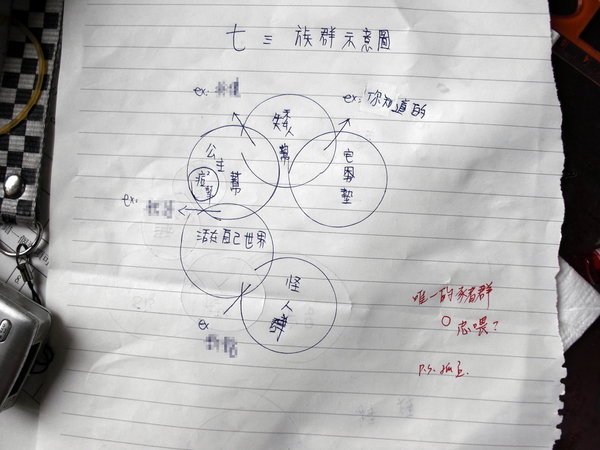 七三族群示意圖
ex:
ex: 你知道的
矮人幫
公主幫
宅男塾
ex:
活在自己世界
怪人
ex
唯一的豬群
P.S. 孤立.